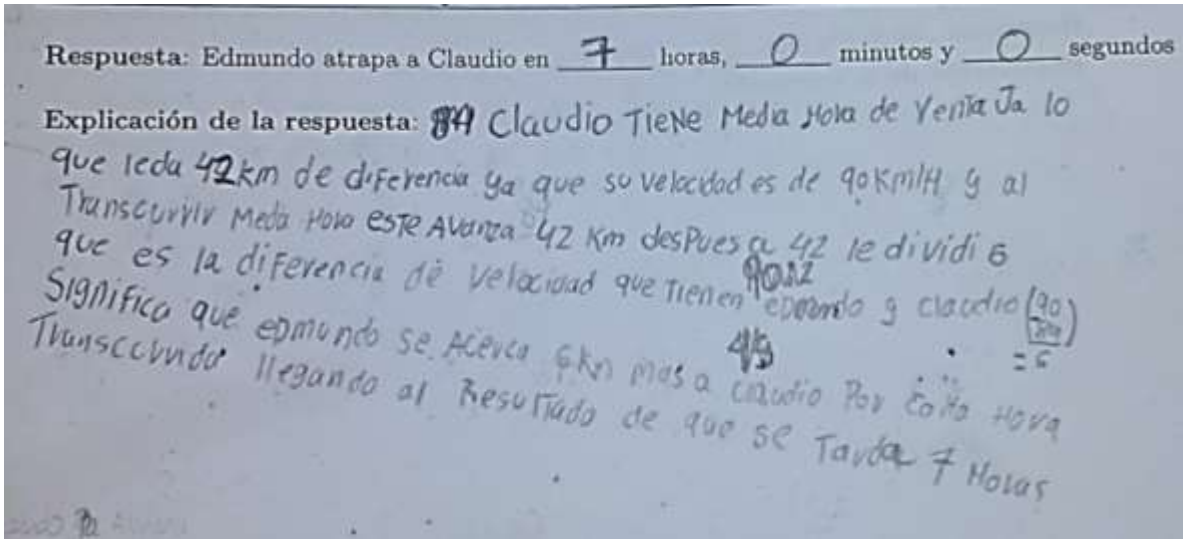 Respuesta: Edmundo atrapa a Claudio en 7 horas, 0 minutos y 0 segundos
Explicación de la respuesta: Claudio TieNe Media Hora de VentaJa lo
que leda 42km de diferencia ya que su velocidad es de 90Km/H y al
Transcurrir Media Hora esTe AVanza 42 Km desPues a 42 le dividi 6
que es la diferencia de velocidad que Tienen edmundo y claudio (90
= 6
Significa que eDmundo se Acerca 6km mas a claudio Por Hora
Transcurrida llegando al ResulTado de que se Tarda 7 Horas